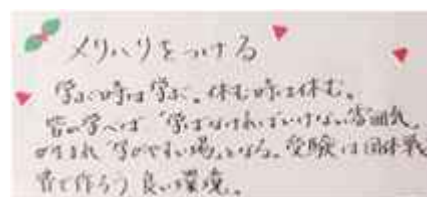 メリハリをつける
学ぶ時は学ぶ。休む時は休む。
皆が学べば「学ばなければいけない雰囲気」
が生まれ「学びやすい場」となる。受験は団体戦
皆で作ろう 良い環境。